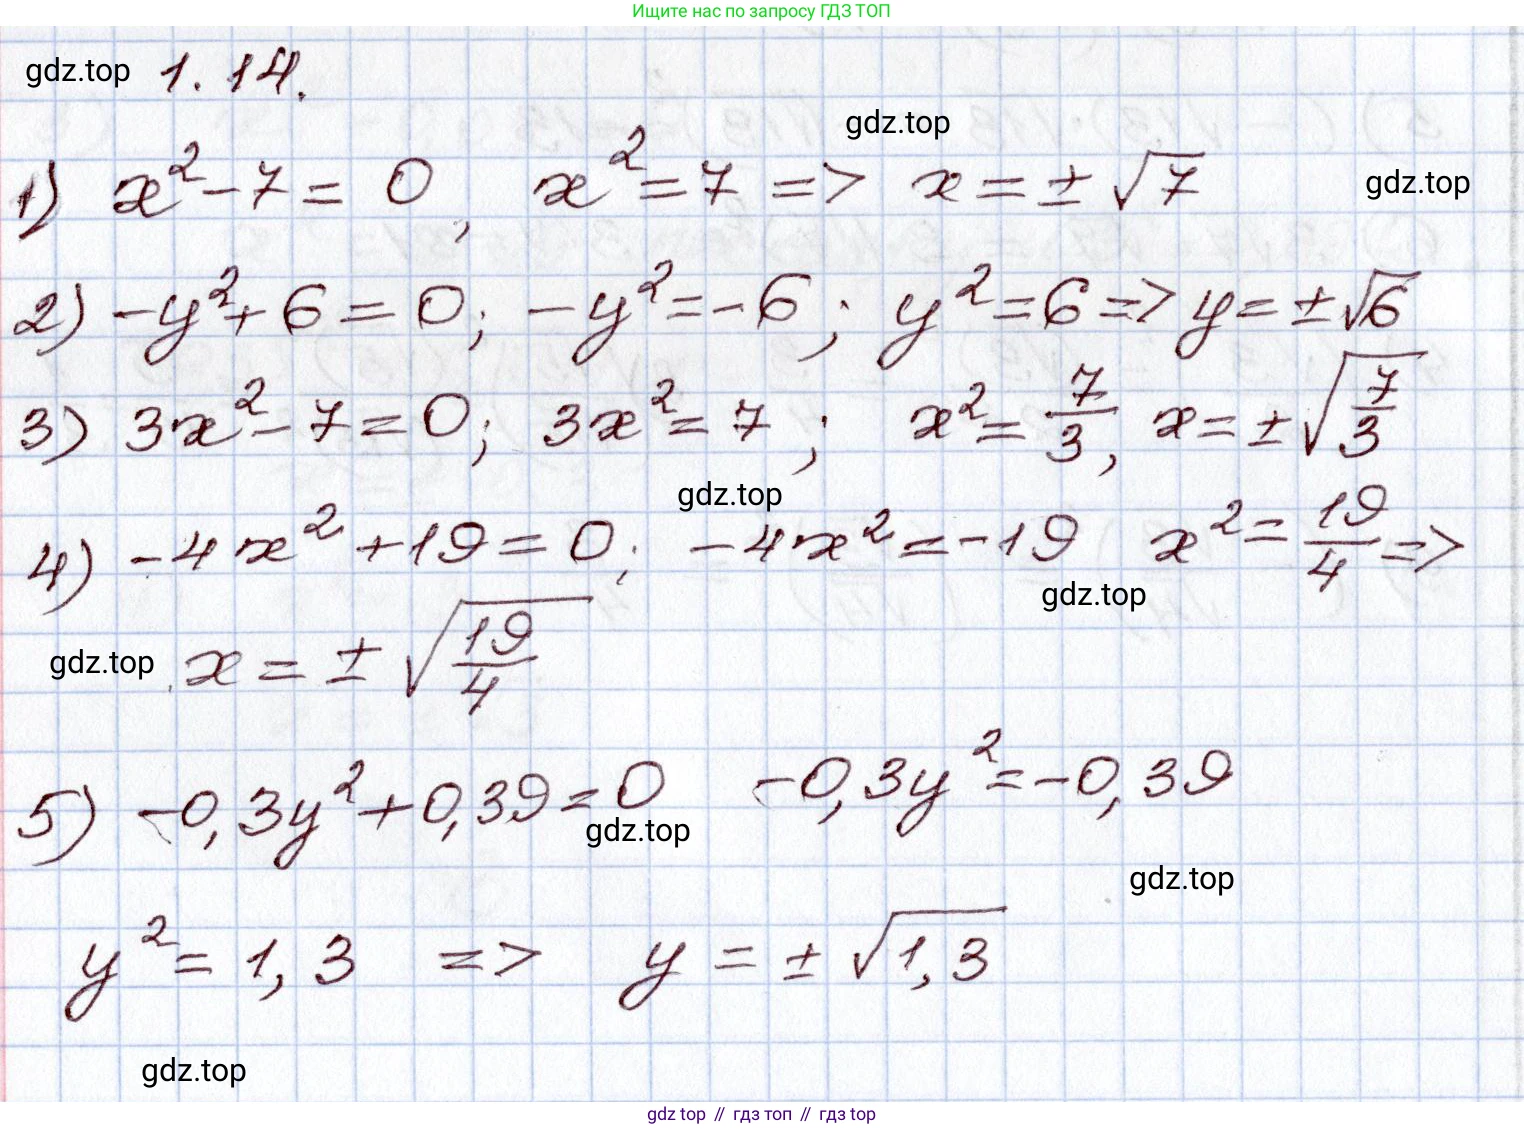 Ищите нас по запросу ГДЗ ТОП
gdz.top 1.14.
gdz.top
1) x² - 7 = 0, x² = 7 => x = ± √7
gdz.top
2) -y² + 6 = 0; -y² = -6; y² = 6 => y = ± √6
3) 3x² - 7 = 0; 3x² = 7; x² = 7/3, x = ± √(7/3)
gdz.top
4) -4x² + 19 = 0; -4x² = -19 x² = 19/4 =>
gdz.top
gdz.top x = ± √(19/4)
5) -0,3y² + 0,39 = 0 -0,3y² = -0,39
gdz.top
gdz.top
y² = 1,3 => y = ± √1,3
gdz.top
gdz top // гдз топ // гдз top